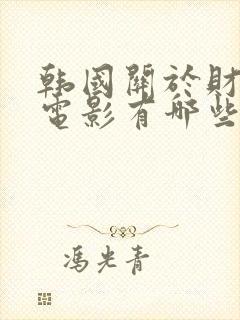 韩國關於財
電影有哪些
馮光青